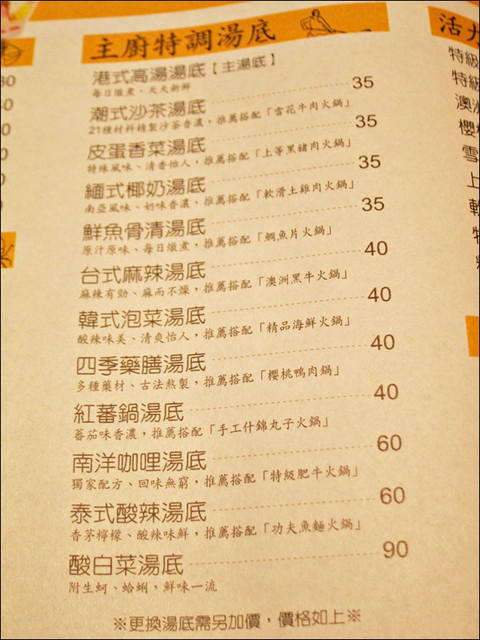 主廚特調湯底
港式高湯湯底【主湯底】
每日燉煮、天天新鮮
潮式沙茶湯底 35
21種材料精製沙茶香濃,推薦搭配「雪花牛肉火鍋」
皮蛋香菜湯底 35
特殊風味、清香怡人,推薦搭配「上等黑豬肉火鍋」
緬式椰奶湯底 35
南亞風味、奶味香濃,推薦搭配「軟滑土雞肉火鍋」
鮮魚骨清湯底 35
原汁原味、每日燉煮,推薦搭配「鯛魚片火鍋」
台式麻辣湯底 40
麻辣有勁、麻而不燥,推薦搭配「澳洲黑牛火鍋」
韓式泡菜湯底 40
酸辣味美、清爽怡人,推薦搭配「精品海鮮火鍋」
四季藥膳湯底 40
多種藥材、古法熬製,推薦搭配「櫻桃鴨肉鍋」
紅蕃鍋湯底 40
蕃茄味香濃,推薦搭配「手工什錦丸子火鍋」
南洋咖哩湯底 60
獨家配方、回味無窮,推薦搭配「特級肥牛火鍋」
泰式酸辣湯底 60
香茅檸檬、酸辣味鮮,推薦搭配「功夫魚麵火鍋」
酸白菜湯底 90
附生蚵、蛤蜊,鮮味一流
※更換湯底需另加價,價格如上※
活
特級
特級
澳
櫻
雪
上